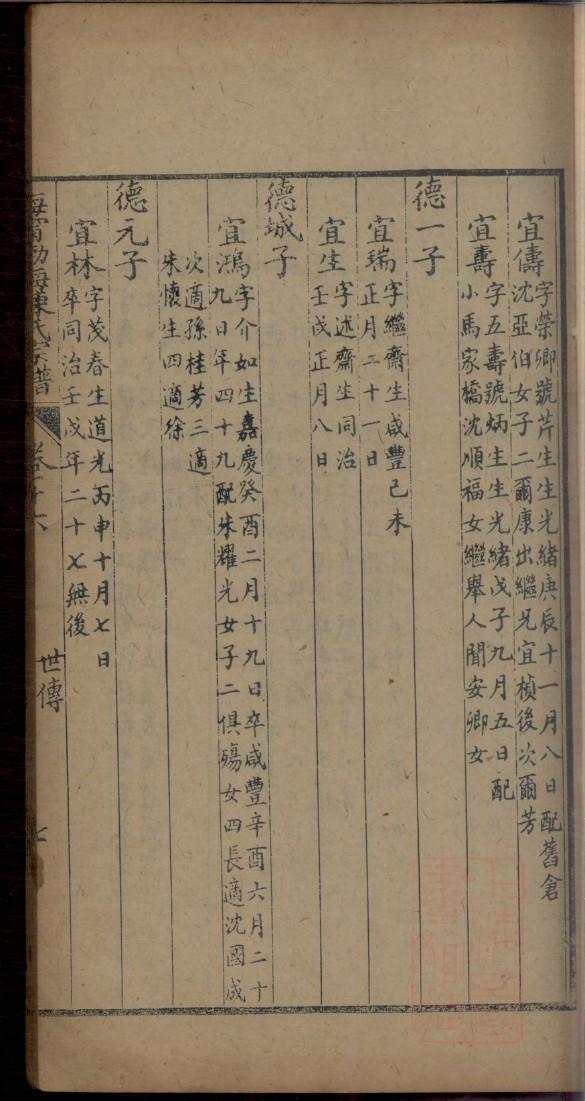 宜儔字榮卿號芹生生光緒庚辰十一月八日配舊倉
沈亞伯女子二爾康出繼兄宜楨後次爾芳
宜壽字五壽號炳生生光緒戊子九月五日配
小馬家橋沈順福女繼舉人聞安卿女
德一子
宜瑞字繼齋生咸豐己未
正月二十一日
宜生字述齋生同治
壬戌正月八日
德城子
宜鴻字介如生嘉慶癸酉二月十九日卒咸豐辛酉六月二十
九日年四十九配朱耀光女子二俱殤女四長適沈國成
次適孫桂芳三適
朱懷生四適徐
德元子
宜林字茂春生道光丙申十月七日
卒同治壬戌年二十七無後
海寧渤海陳氏宗譜
卷
六
世傳
七